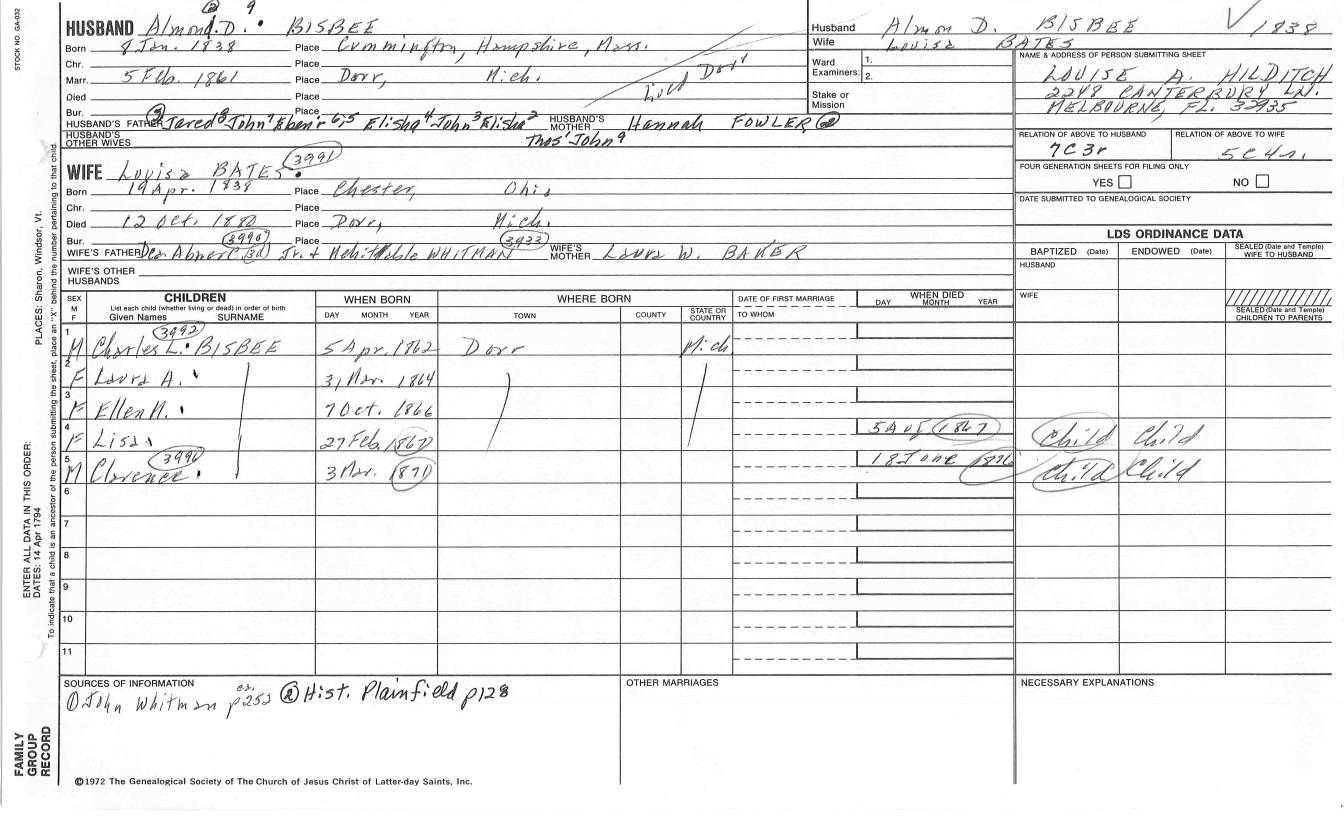 STOCK NO. GA-032
② 9
HUSBAND Almond D. BISBEE
Born 8 Jan. 1838 Place Cummington, Hampshire, Mass.
Chr. Place
Marr. 5 Feb. 1861 Place Dorr, Mich.
Lived Dorr
Died Place
Bur. Place
HUSBAND'S FATHER ② Jared⁸ John⁷ Eben'r⁶,⁵ Elisha⁴ John³ Elisha² HUSBAND'S MOTHER Hannah FOWLER ②
HUSBAND'S OTHER WIVES Thos' John⁹
3991
WIFE Louisa BATES
Born 19 Apr. 1838 Place Chester, Ohio
Chr. Place
Died 12 Oct. 1880 Place Dorr, Mich.
Bur. 3990 Place 3933
WIFE'S FATHER Dea. Abner C. 3d Jr. + Mehittable WHITMAN WIFE'S MOTHER Laura W. BAKER
WIFE'S OTHER HUSBANDS
Husband Almon D. BISBEE 1838
Wife Louisa BATES
Ward 1.
Examiners: 2.
Stake or Mission
NAME & ADDRESS OF PERSON SUBMITTING SHEET
LOUISE A. HILDITCH
2248 CANTERBURY LN.
MELBOURNE, FL. 32935
RELATION OF ABOVE TO HUSBAND RELATION OF ABOVE TO WIFE
7C3r 5C4r.
FOUR GENERATION SHEETS FOR FILING ONLY
YES NO
DATE SUBMITTED TO GENEALOGICAL SOCIETY
LDS ORDINANCE DATA
BAPTIZED (Date) ENDOWED (Date) SEALED (Date and Temple) WIFE TO HUSBAND
HUSBAND
WIFE
SEALED (Date and Temple) CHILDREN TO PARENTS
SEX M F CHILDREN List each child (whether living or dead) in order of birth Given Names SURNAME WHEN BORN DAY MONTH YEAR WHERE BORN TOWN COUNTY STATE OR COUNTRY DATE OF FIRST MARRIAGE TO WHOM WHEN DIED DAY MONTH YEAR
3992
1 M Charles L. BISBEE 5 Apr. 1862 Dorr Mich.
2 F Laura A. 31 Mar. 1864
3 F Ellen M. 7 Oct. 1866
4 F Lisa 27 Feb. 1867 5 Aug 1867 Child Child
3996
5 M Clarence 3 Mar. 1871 18 June 1876 Child Child
6
7
8
9
10
11
SOURCES OF INFORMATION
① John Whitman p252 ② Hist. Plainfield p128
OTHER MARRIAGES
NECESSARY EXPLANATIONS
©1972 The Genealogical Society of The Church of Jesus Christ of Latter-day Saints, Inc.
FAMILY GROUP RECORD
ENTER ALL DATA IN THIS ORDER:
DATES: 14 Apr 1794
PLACES: Sharon, Windsor, Vt.
To indicate that a child is an ancestor of the person submitting the sheet, place an "X" behind the number pertaining to that child.